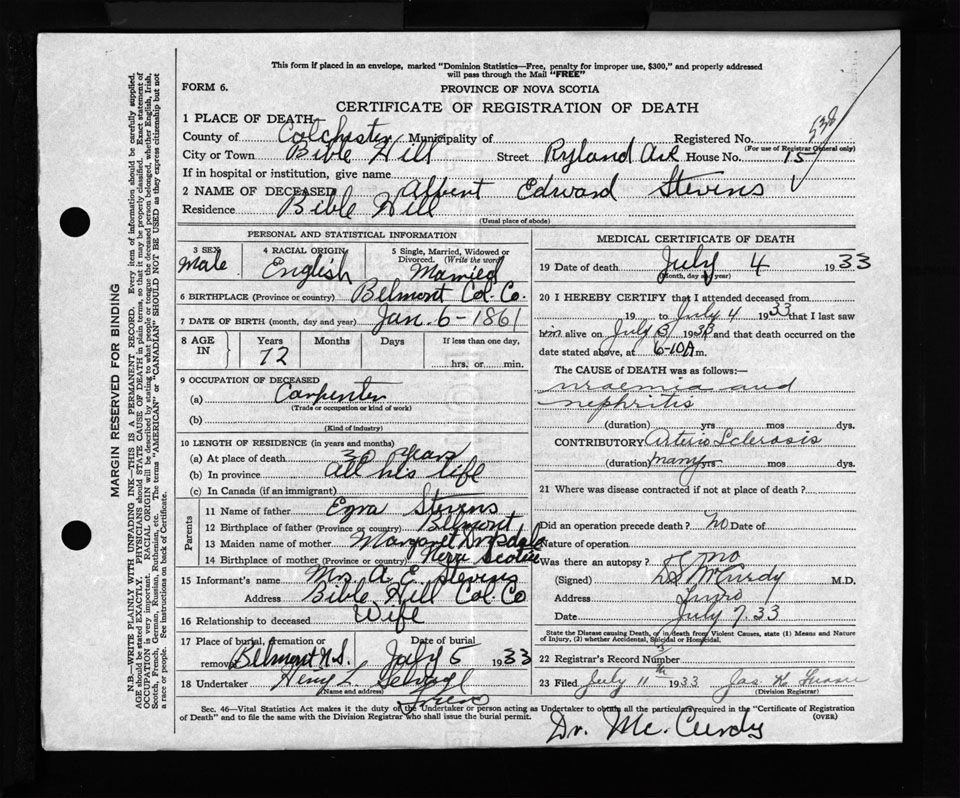 This form if placed in an envelope, marked "Dominion Statistics—Free, penalty for improper use, $300," and properly addressed
will pass through the Mail "FREE"
FORM 6.
PROVINCE OF NOVA SCOTIA
CERTIFICATE OF REGISTRATION OF DEATH
1 PLACE OF DEATH
County of Colchester Municipality of Registered No. 538
(For use of Registrar General only)
City or Town Bible Hill Street Ryland Ave House No. 15
If in hospital or institution, give name
2 NAME OF DECEASED Albert Edward Stevens
Residence Bible Hill
(Usual place of abode)
PERSONAL AND STATISTICAL INFORMATION
3 SEX Male
4 RACIAL ORIGIN English
5 Single, Married, Widowed or Divorced. (Write the word) Married
6 BIRTHPLACE (Province or country) Belmont Col. Co.
7 DATE OF BIRTH (month, day and year) Jan. 6 - 1861
8 AGE IN Years 72 Months Days If less than one day, hrs. or min.
9 OCCUPATION OF DECEASED
(a) Carpenter
(Trade or occupation or kind of work)
(b)
(Kind of industry)
10 LENGTH OF RESIDENCE (in years and months)
(a) At place of death 30 years
(b) In province all his life
(c) In Canada (if an immigrant)
Parents
11 Name of father Ezra Stevens
12 Birthplace of father (Province or country) Belmont
13 Maiden name of mother Margaret
14 Birthplace of mother (Province or country) Nova Scotia
15 Informant's name Mrs A. E. Stevens
Address Bible Hill Col. Co
16 Relationship to deceased Wife
17 Place of burial, cremation or removal Belmont N.S. Date of burial July 5 1933
18 Undertaker Henry L
(Name and address)
Truro
MEDICAL CERTIFICATE OF DEATH
19 Date of death July 4 1933
(Month, day and year)
20 I HEREBY CERTIFY that I attended deceased from
19 to July 4 1933 that I last saw
him alive on July 3 1933 and that death occurred on the
date stated above, at 6-10 A m.
The CAUSE of DEATH was as follows:—
uraemia and
nephritis
(duration) yrs mos dys.
CONTRIBUTORY Arterio Sclerosis
(duration) many yrs mos dys.
21 Where was disease contracted if not at place of death?
Did an operation precede death? no Date of
Nature of operation
Was there an autopsy? no
(Signed) McCurdy M.D.
Address Truro
Date July 7. 33
State the Disease causing Death, or in death from Violent Causes, state (1) Means and Nature
of Injury, (2) whether Accidental, Suicidal or Homicidal.
22 Registrar's Record Number
23 Filed July 11th 1933 Jas. H.
(Division Registrar)
Sec. 46—Vital Statistics Act makes it the duty of the Undertaker or person acting as Undertaker to obtain all the particulars required in the "Certificate of Registration
of Death" and to file the same with the Division Registrar who shall issue the burial permit. (OVER)
Dr. Mc. Curdy
MARGIN RESERVED FOR BINDING
N.B.—WRITE PLAINLY WITH UNFADING INK—THIS IS A PERMANENT RECORD. Every item of information should be carefully supplied.
AGE should be stated EXACTLY. PHYSICIANS should STATE CAUSE OF DEATH in plain terms, so that it may be properly classified. Exact statement of
OCCUPATION is very important. RACIAL ORIGIN will be described by stating to what people or tongue the deceased person belonged, whether English, Irish,
Scotch, French, German, Russian, Ruthenian, etc. The terms "AMERICAN" or "CANADIAN" SHOULD NOT BE USED as they express citizenship but not
a race or people. See instructions on back of Certificate.